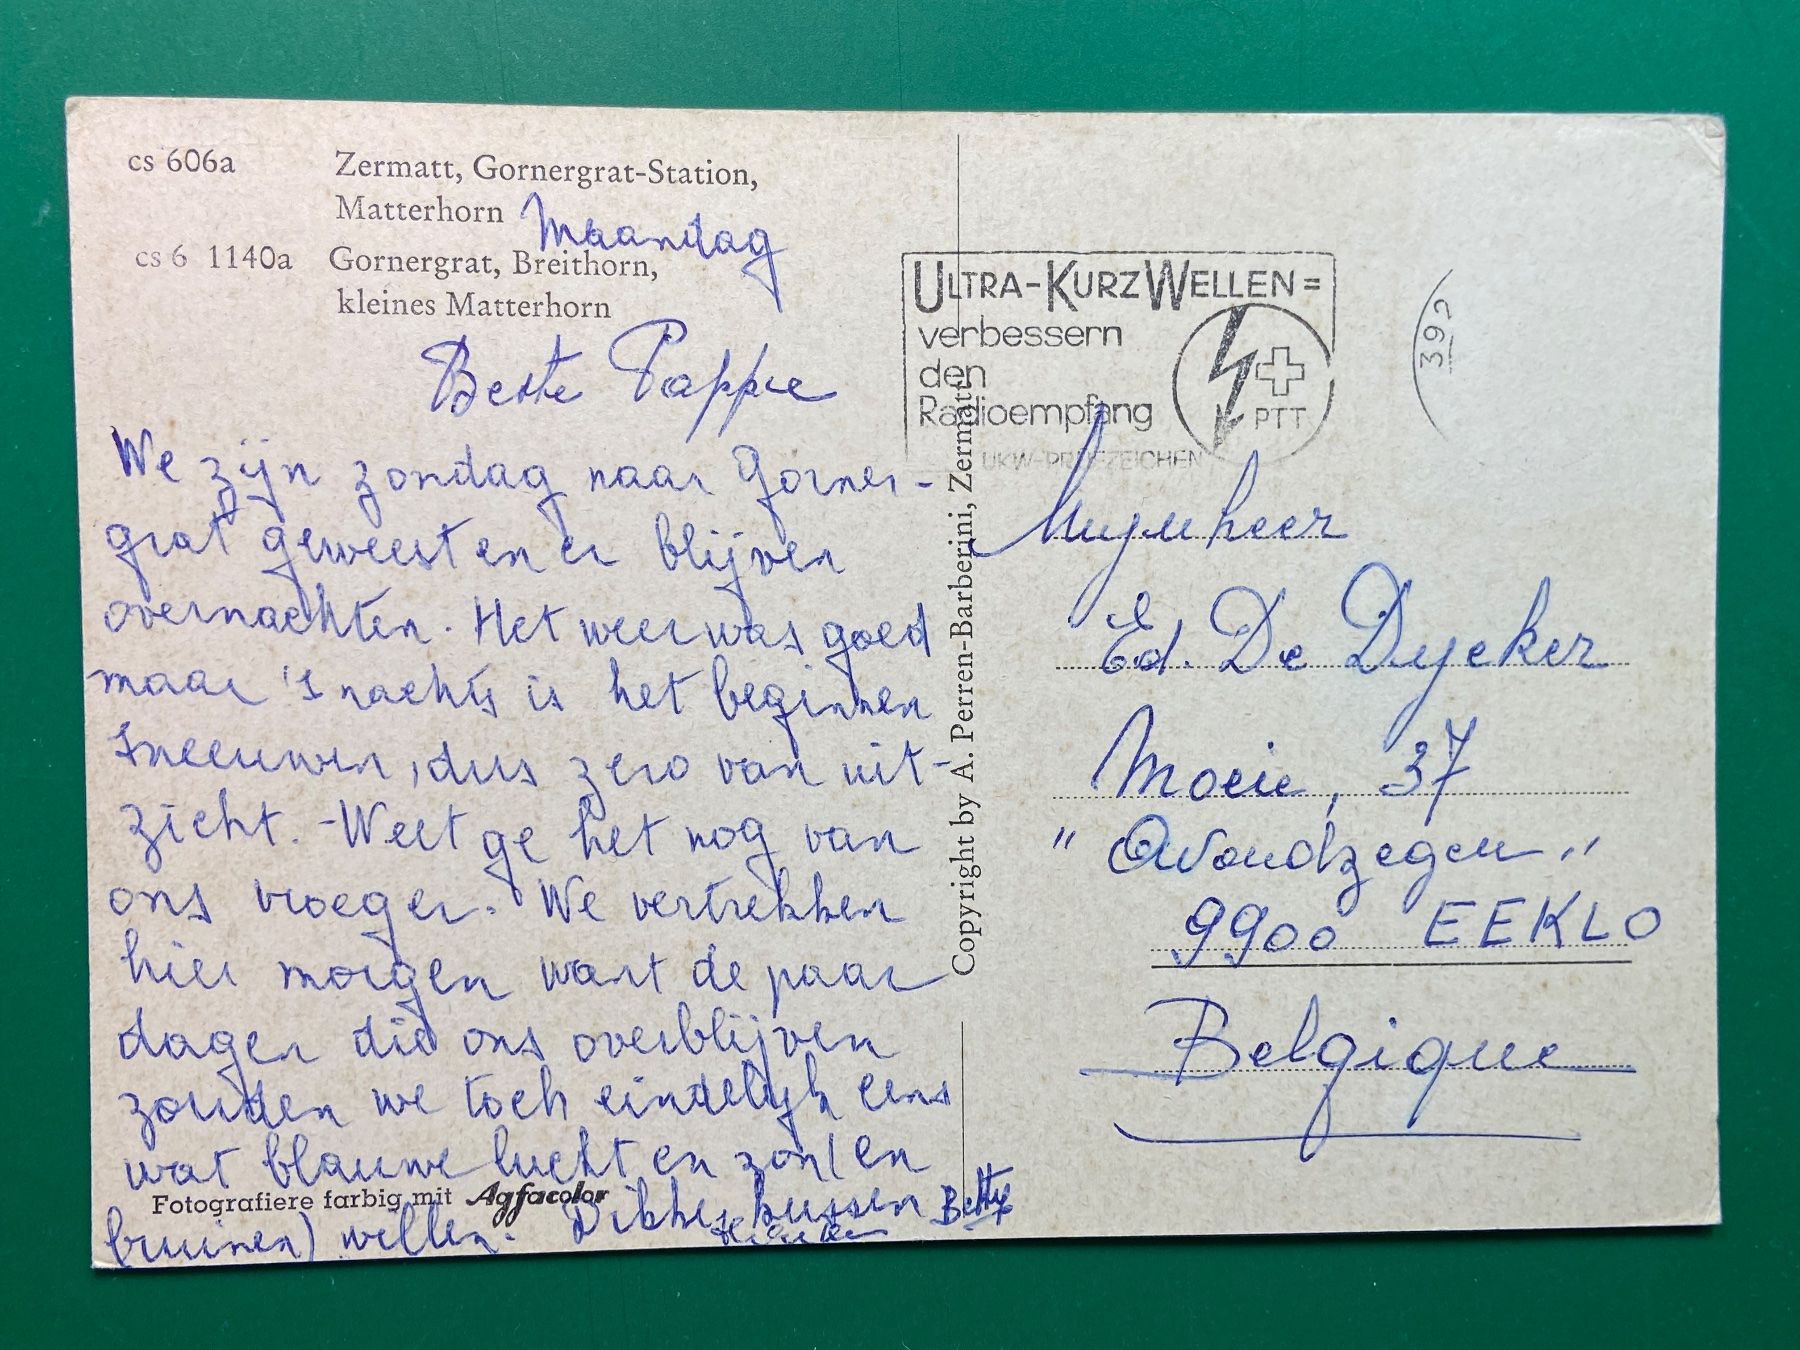 cs 606a Zermatt, Gornergrat-Station,
Matterhorn
Maandag
cs 6 1140a Gornergrat, Breithorn,
kleines Matterhorn
Beste Pappie
We zijn zondag naar Gorner-
grat geweest en er blijven
overnachten. Het weer was goed
maar 's nachts is het beginnen
sneeuwen, dus zero van uit-
zicht. - Weet ge het nog van
ons vroeger. We vertrekken
hier morgen want de paar
dagen die ons overblijven
zouden we toch eindelijk eens
wat blauwe lucht en zon (en
Fotografiere farbig mit Agfacolor
bruinen) willen. Dikke kussen Betty
Copyright by A. Perren-Barberini, Zermatt
ULTRA-KURZWELLEN=
verbessern
den
Radioempfang
PTT
UKW-PRÜFZEICHEN
392
Mijnheer
Ed. De Dycker
Moeie, 37
"Avondzegen"
9900 EEKLO
Belgique